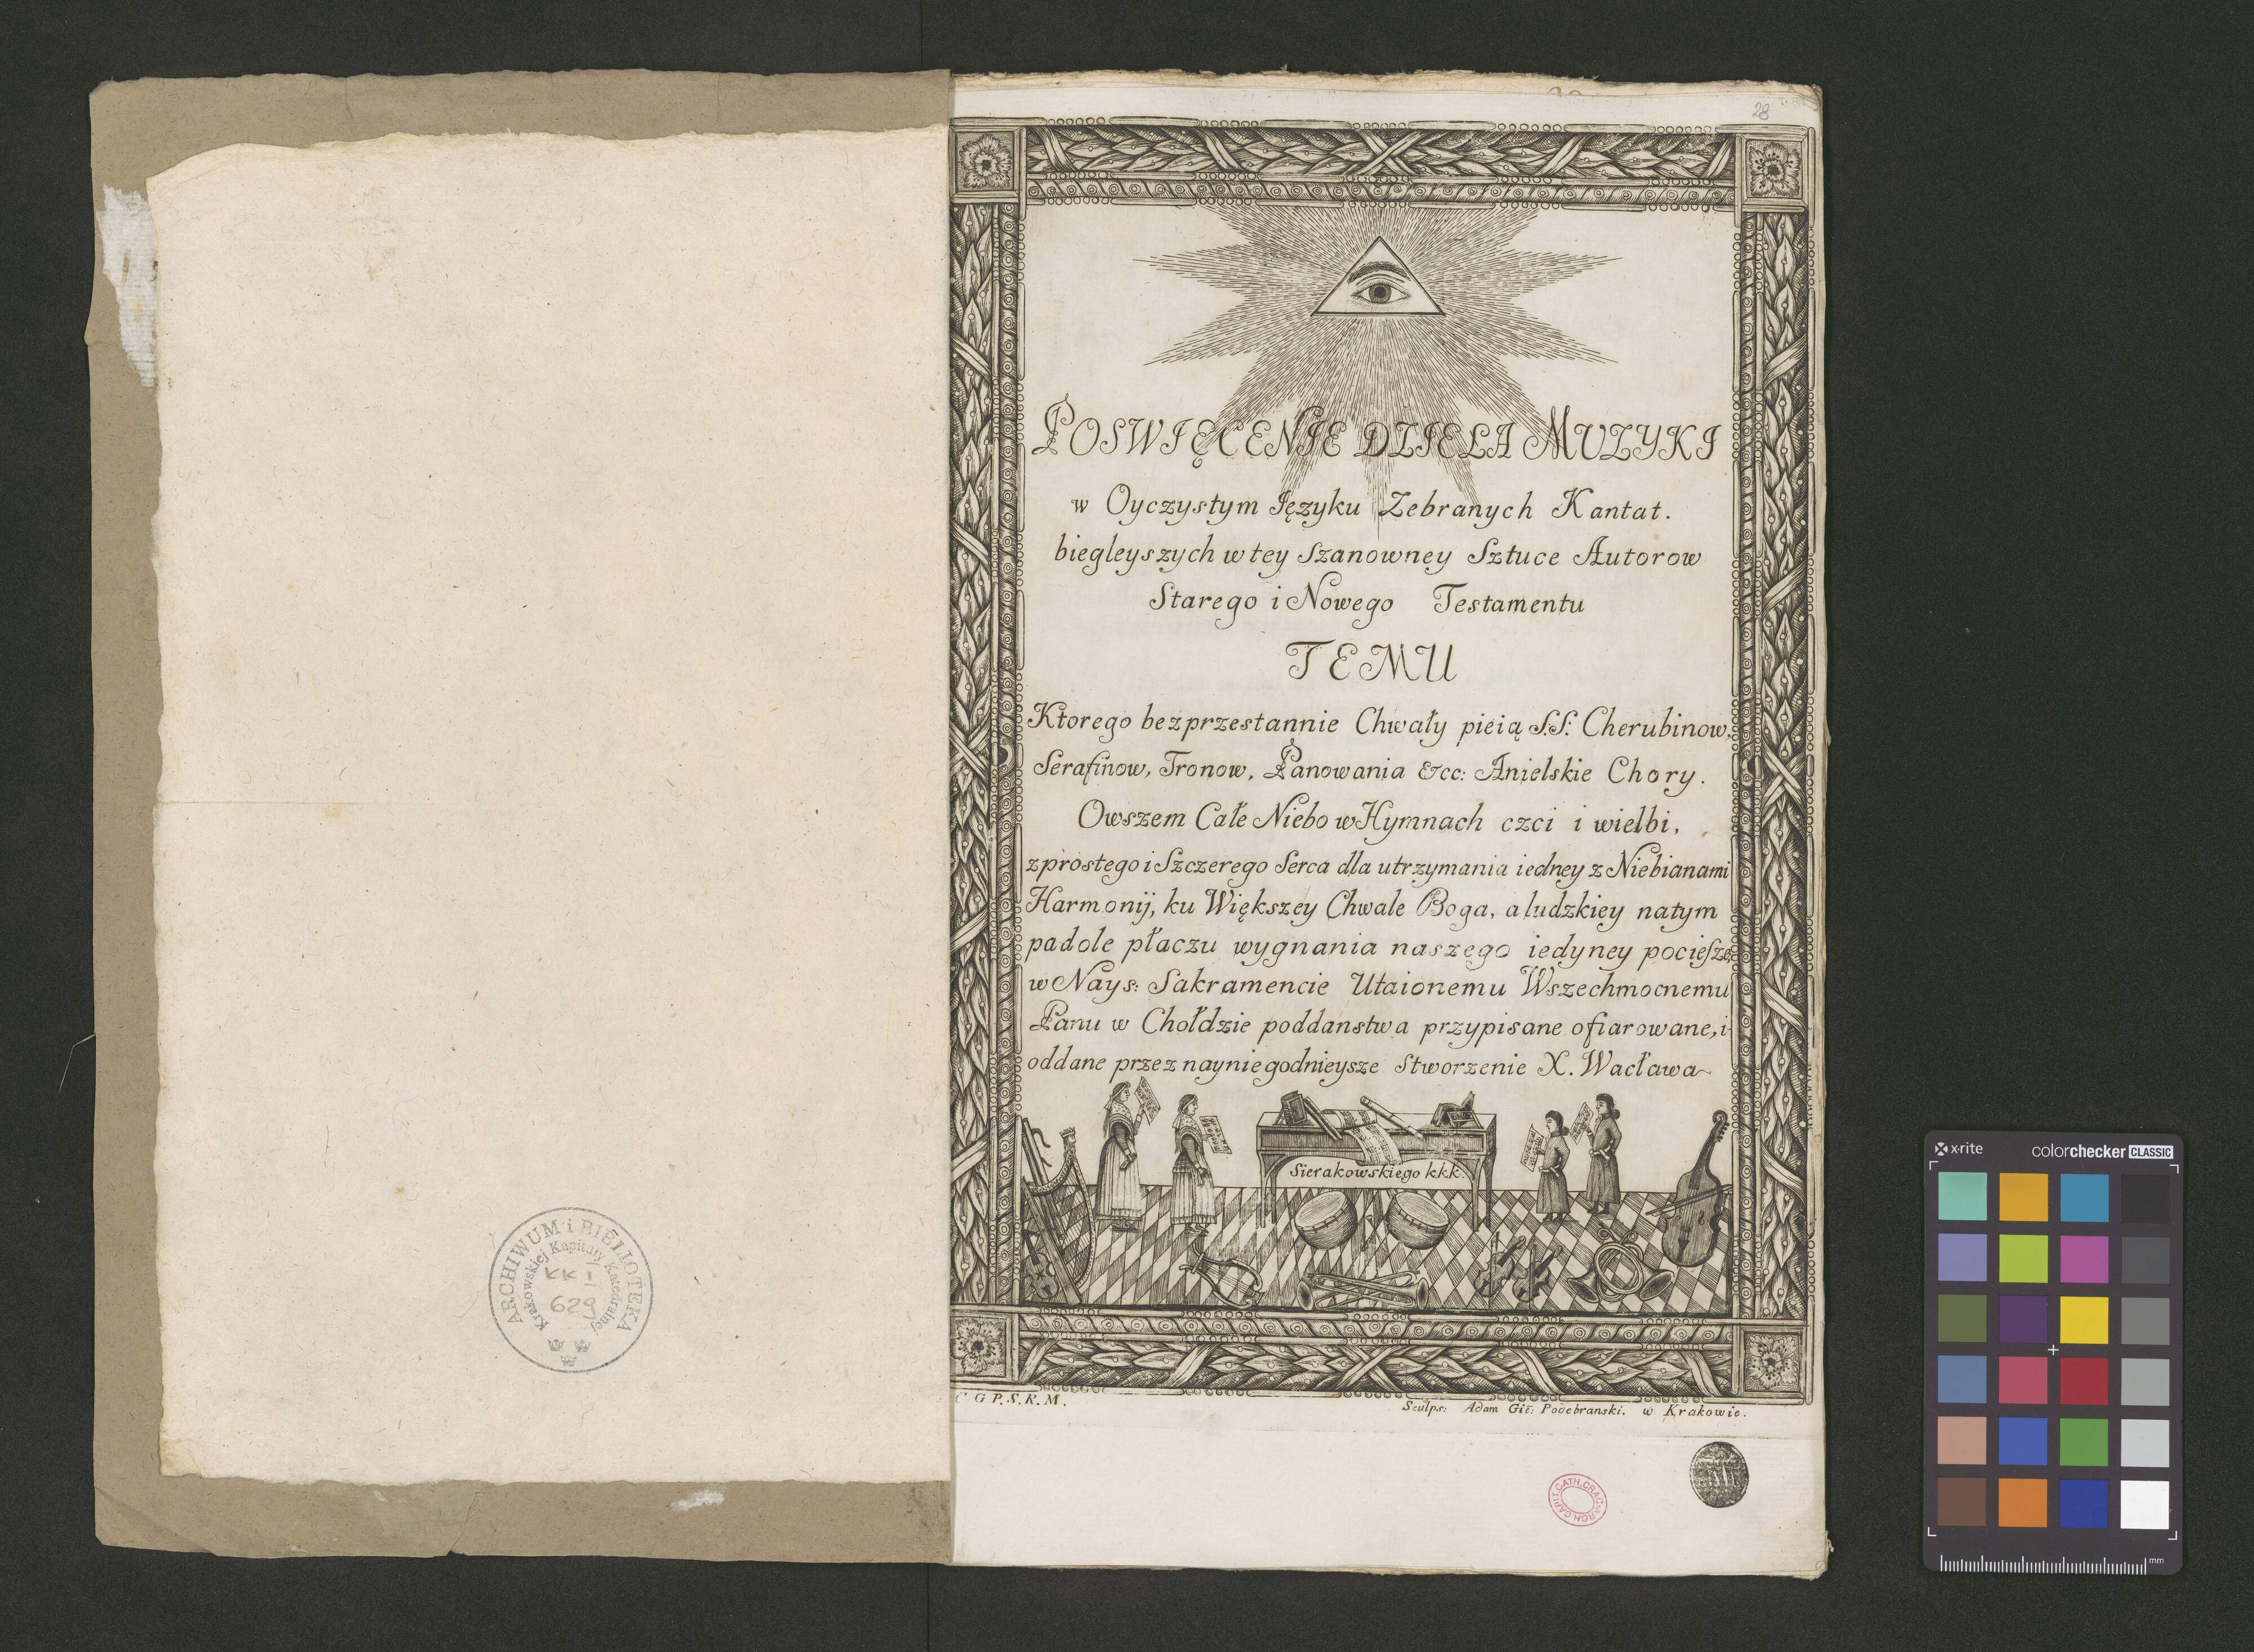 28
POSWIĘCENIE DZIELA MUZYKI
w Oyczystym Ięzyku Zebranych Kantat.
biegleyszych w tey Szanowney Sztuce Autorow
Starego i Nowego Testamentu
TEMU
Ktorego bezprzestannie Chwały pieią S.S: Cherubinow,
Serafinow, Tronow, Panowania &cc: Anielskie Chory.
Owszem Całe Niebo w Hymnach czci i wielbi,
z prostego i Szczerego Serca dla utrzymania iedney z Niebianami
Harmonij, ku Większey Chwale Boga, a ludzkiey na tym
padole płaczu wygnania naszego iedyney pociesze,
w Nays: Sakramencie Utaionemu Wszechmocnemu
Panu w Chołdzie poddanstwa przypisane ofiarowane, i
oddane przez nayniegodnieysze Stworzenie X. Wacława
Sierakowskiego k.k.k.
C. G P.S.K.M.
Sculps: Adam Gie: Podebranski. w Krakowie.
ARCHIWUM i BIBLIOTEKA
Krakowskiej Kapituły Katedralnej
KK I
629
ARCH.CAPIT.CATH.CRAC.
x·rite
colorchecker CLASSIC
mm